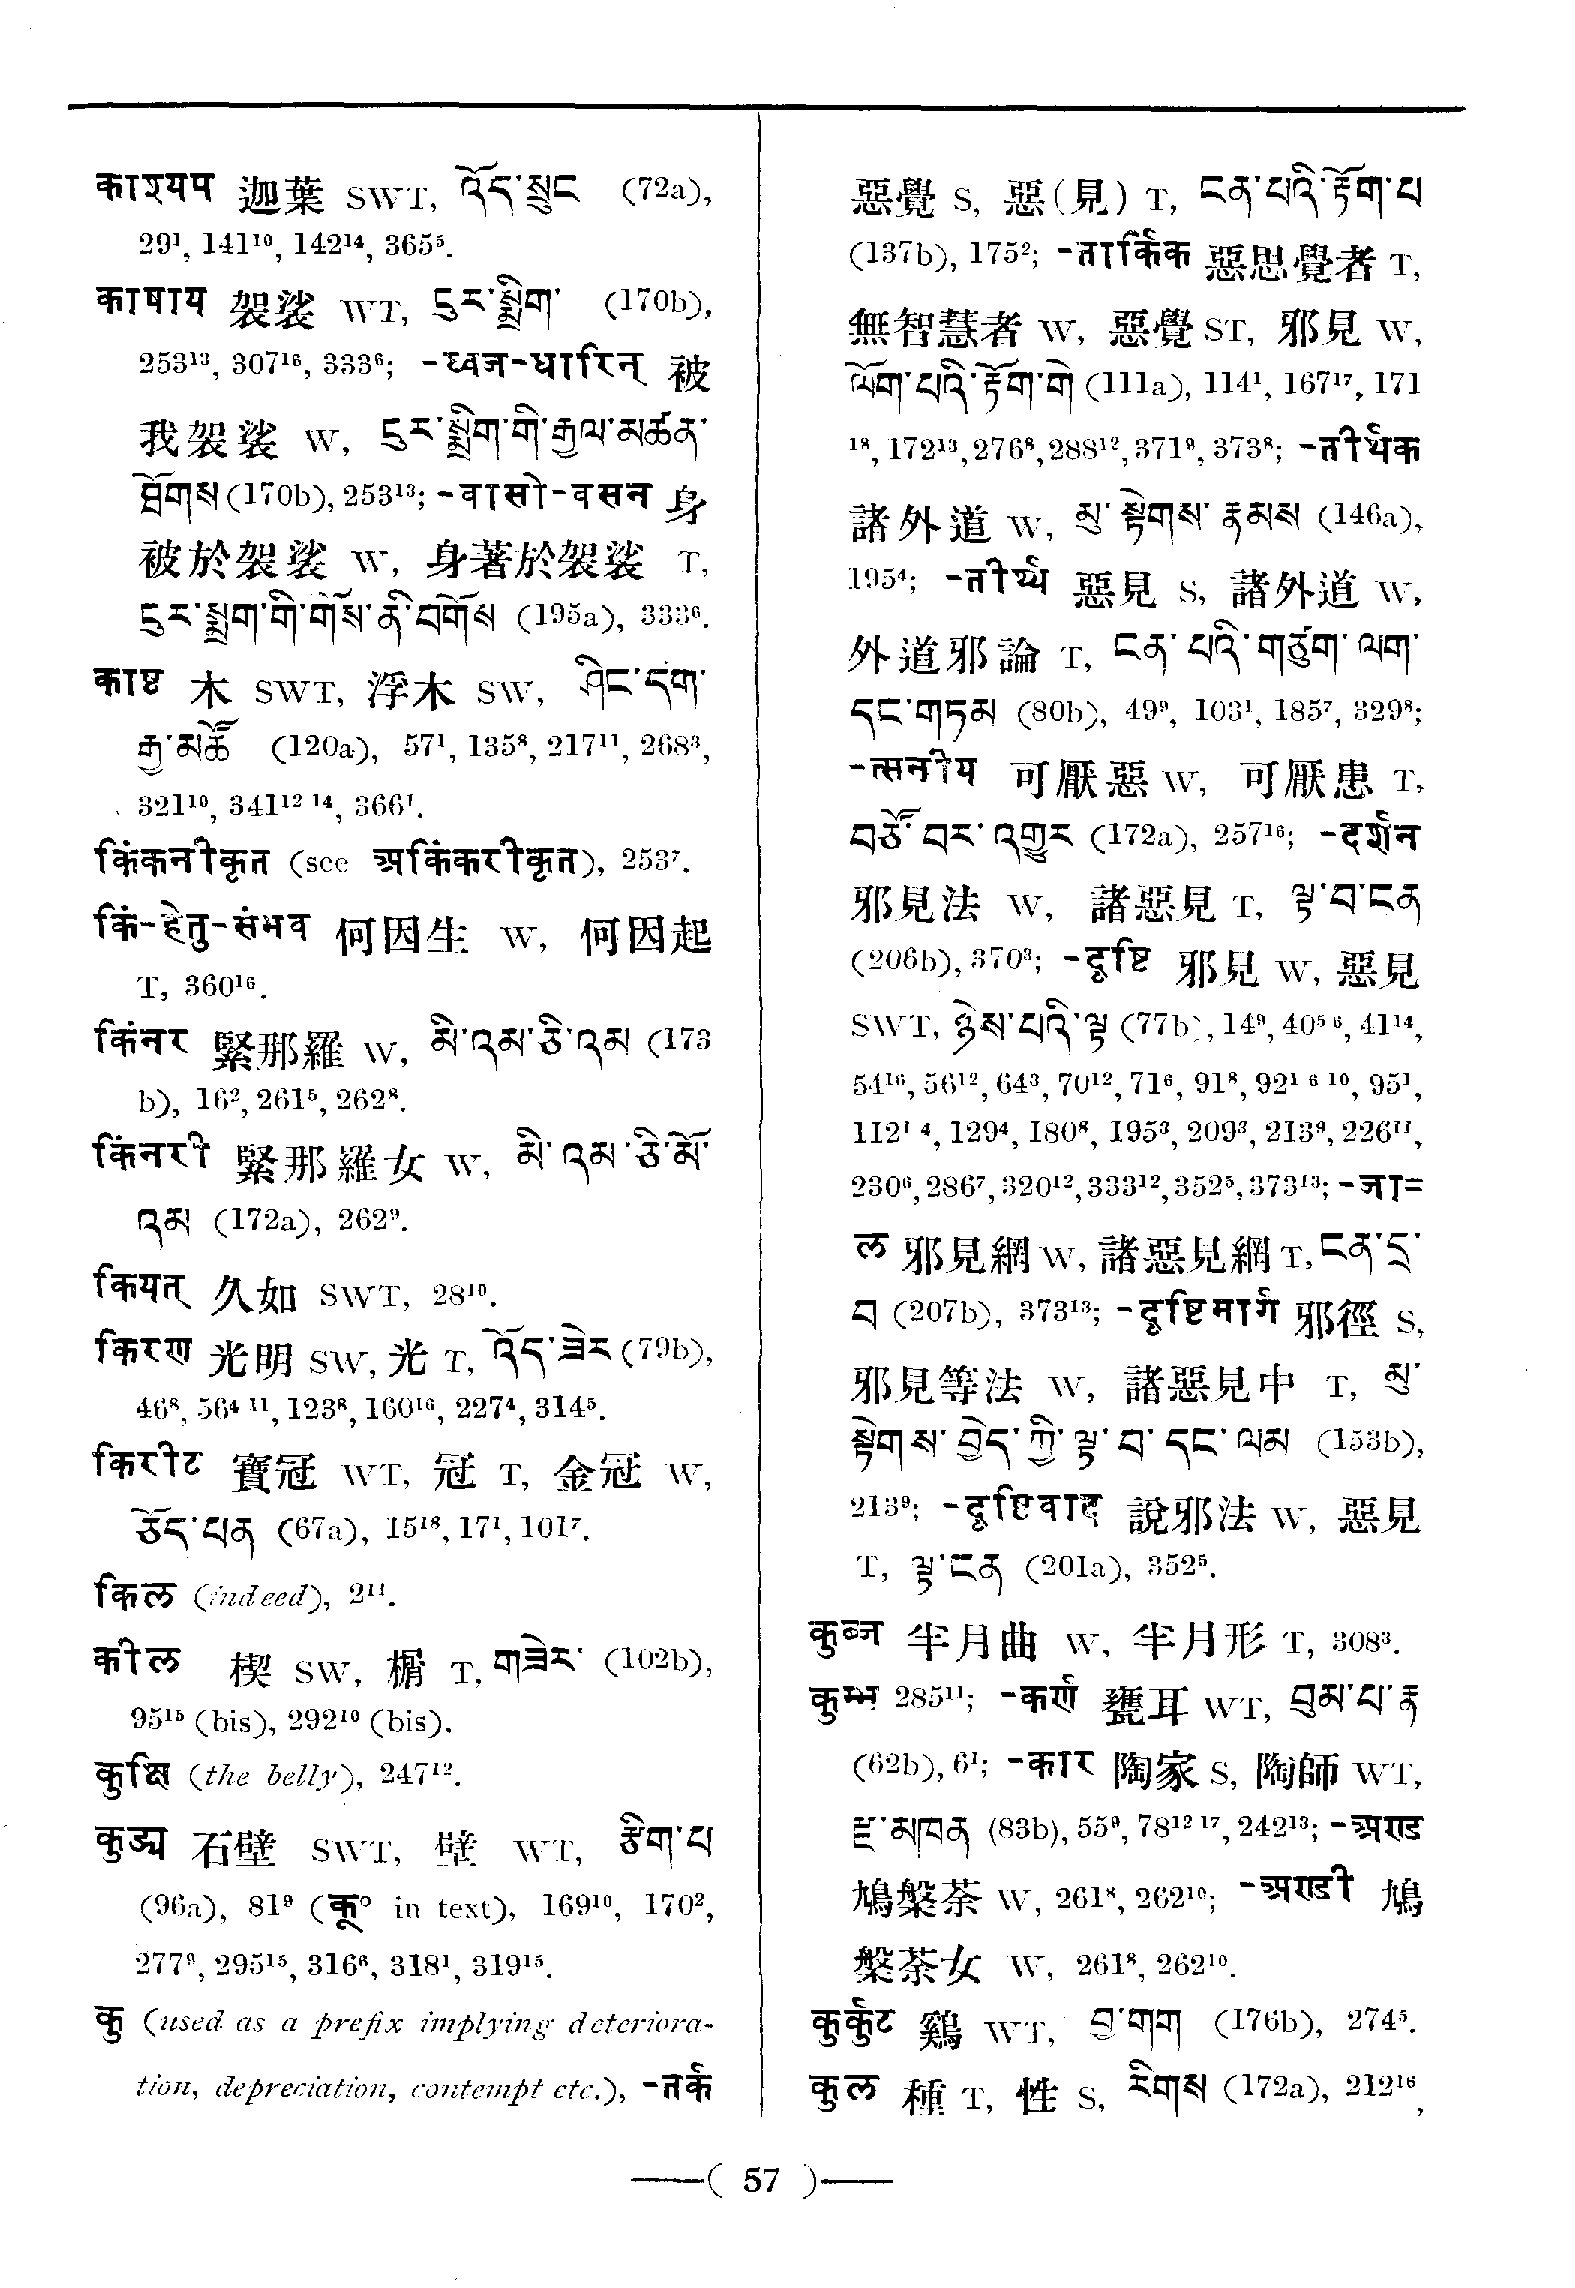 काश्यप 迦葉 SWT, འོད་སྲུང (72a),
29¹, 141¹⁰, 142¹⁴, 365⁵.
काषाय 袈裟 WT, དུར་སྨྲིག་ (170b),
253¹³, 307¹⁶, 333⁶; -ध्वज-धारिन् 被
我袈裟 W, དུར་སྨྲིག་གི་རྒྱལ་མཚན་
ཐོགས (170b), 253¹³; -वासो-वसन 身
被於袈裟 W, 身著於袈裟 T,
དུར་སྨྲག་གི་གོས་ནི་བགོས (195a), 333⁶.
काष्ट 木 SWT, 浮木 SW, ཤིང་དག་
རྒྱ་མཚོ (120a), 57¹, 135⁸, 217¹¹, 268³,
321¹⁰, 341¹² ¹⁴, 366¹.
किंकनीकृत (see अकिंकरीकृत), 253⁷.
किं-हेतु-संभव 何因生 W, 何因起
T, 360¹⁶.
किंनर 緊那羅 W, མི་འམ་ཅི་འམ (173
b), 16², 261⁵, 262⁸.
किंनरी 緊那羅女 W, མི་འམ་ཅི་མོ་
འམ (172a), 262⁹.
कियत् 久如 SWT, 28¹⁰.
किरण 光明 SW, 光 T, འོད་ཟེར (79b),
46⁸, 56⁴ ¹¹, 123⁸, 160¹⁶, 227⁴, 314⁵.
किरीट 寶冠 WT, 冠 T, 金冠 W,
ཅོད་པན (67a), 15¹⁸, 17¹, 101⁷.
किल (indeed), 2¹¹.
कील 楔 SW, 榍 T, གཟེར་ (102b),
95¹⁵ (bis), 292¹⁰ (bis).
कुक्षि (the belly), 247¹².
कुड्य 石壁 SWT, 壁 WT, རྩིག་པ
(96a), 81⁹ (कू° in text), 169¹⁰, 170²,
277⁹, 295¹⁵, 316⁶, 318¹, 319¹⁵.
कु (used as a prefix implying deteriora-
tion, depreciation, contempt etc.), -तर्क
惡覺 S, 惡(見) T, ངན་པའི་རྟོག་པ
(137b), 175²; -तार्किक 惡思覺者 T,
無智慧者 W, 惡覺 ST, 邪見 W,
ལོག་པའི་རྟོག་གེ (111a), 114¹, 167¹⁷, 171
¹⁸, 172¹³, 276⁸, 288¹², 371⁹, 373⁸; -तीर्थक
諸外道 W, མུ་སྟེགས་རྣམས (146a),
195⁴; -तीर्थ्य 惡見 S, 諸外道 W,
外道邪論 T, ངན་པའི་གཙུག་ལག་
དང་གཏམ (80b), 49⁹, 103¹, 185⁷, 329⁸;
-त्सनीय 可厭惡 W, 可厭患 T,
བཙོ་བར་འགྱུར (172a), 257¹⁶; -दर्शन
邪見法 W, 諸惡見 T, ལྟ་བ་ངན
(206b), 370³; -दृष्टि 邪見 W, 惡見
SWT, ཉེས་པའི་ལྟ (77b), 14⁹, 40⁵ ⁶, 41¹⁴,
54¹⁶, 56¹², 64³, 70¹², 71⁶, 91⁸, 92¹ ⁶ ¹⁰, 95¹,
112¹ ⁴, 129⁴, 180⁸, 195³, 209³, 213⁹, 226¹¹,
230⁶, 286⁷, 320¹², 333¹², 352⁵, 373¹³; -जा=
ल 邪見網 W, 諸惡見網 T, ངན་དྲ་
བ (207b), 373¹³; -दृष्टिमार्ग 邪徑 S,
邪見等法 W, 諸惡見中 T, མུ་
སྟེགས་བྱེད་ཀྱི་ལྟ་བ་དང་ལམ (153b),
213⁹; -दृष्टिवाद 說邪法 W, 惡見
T, ལྟ་ངན (201a), 352⁵.
कुब्ज 半月曲 W, 半月形 T, 308³.
कुम्भ 285¹¹; -कर्ण 甕耳 WT, བུམ་པ་རྣ
(62b), 6¹; -कार 陶家 S, 陶師 WT,
རྫ་མཁན (83b), 55⁹, 78¹² ¹⁷, 242¹³; -अण्ड
鳩槃荼 W, 261⁸, 262¹⁰; -अण्डी 鳩
槃荼女 W, 261⁸, 262¹⁰.
कुर्कुट 鷄 WT, བྱ་གག (176b), 274⁵.
कुल 種 T, 性 S, རིགས (172a), 212¹⁶,
—( 57 )—